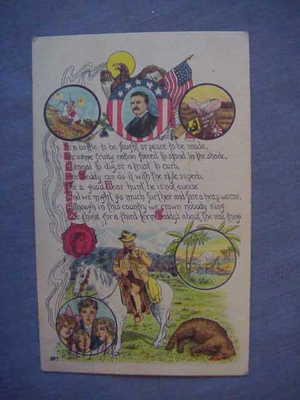 Is a battle to be fought or peace to be made,
Or some trusty nation forced to stand in the shade,
A canal to dig or a trust to curb,
Our Teddy can do it with the rifle superb.
For a good Bear hunt he is not averse
And we might go much further and fare a heap worse.
Although in this country we crown nobody King
We think for a third term Teddy's about the real thing.